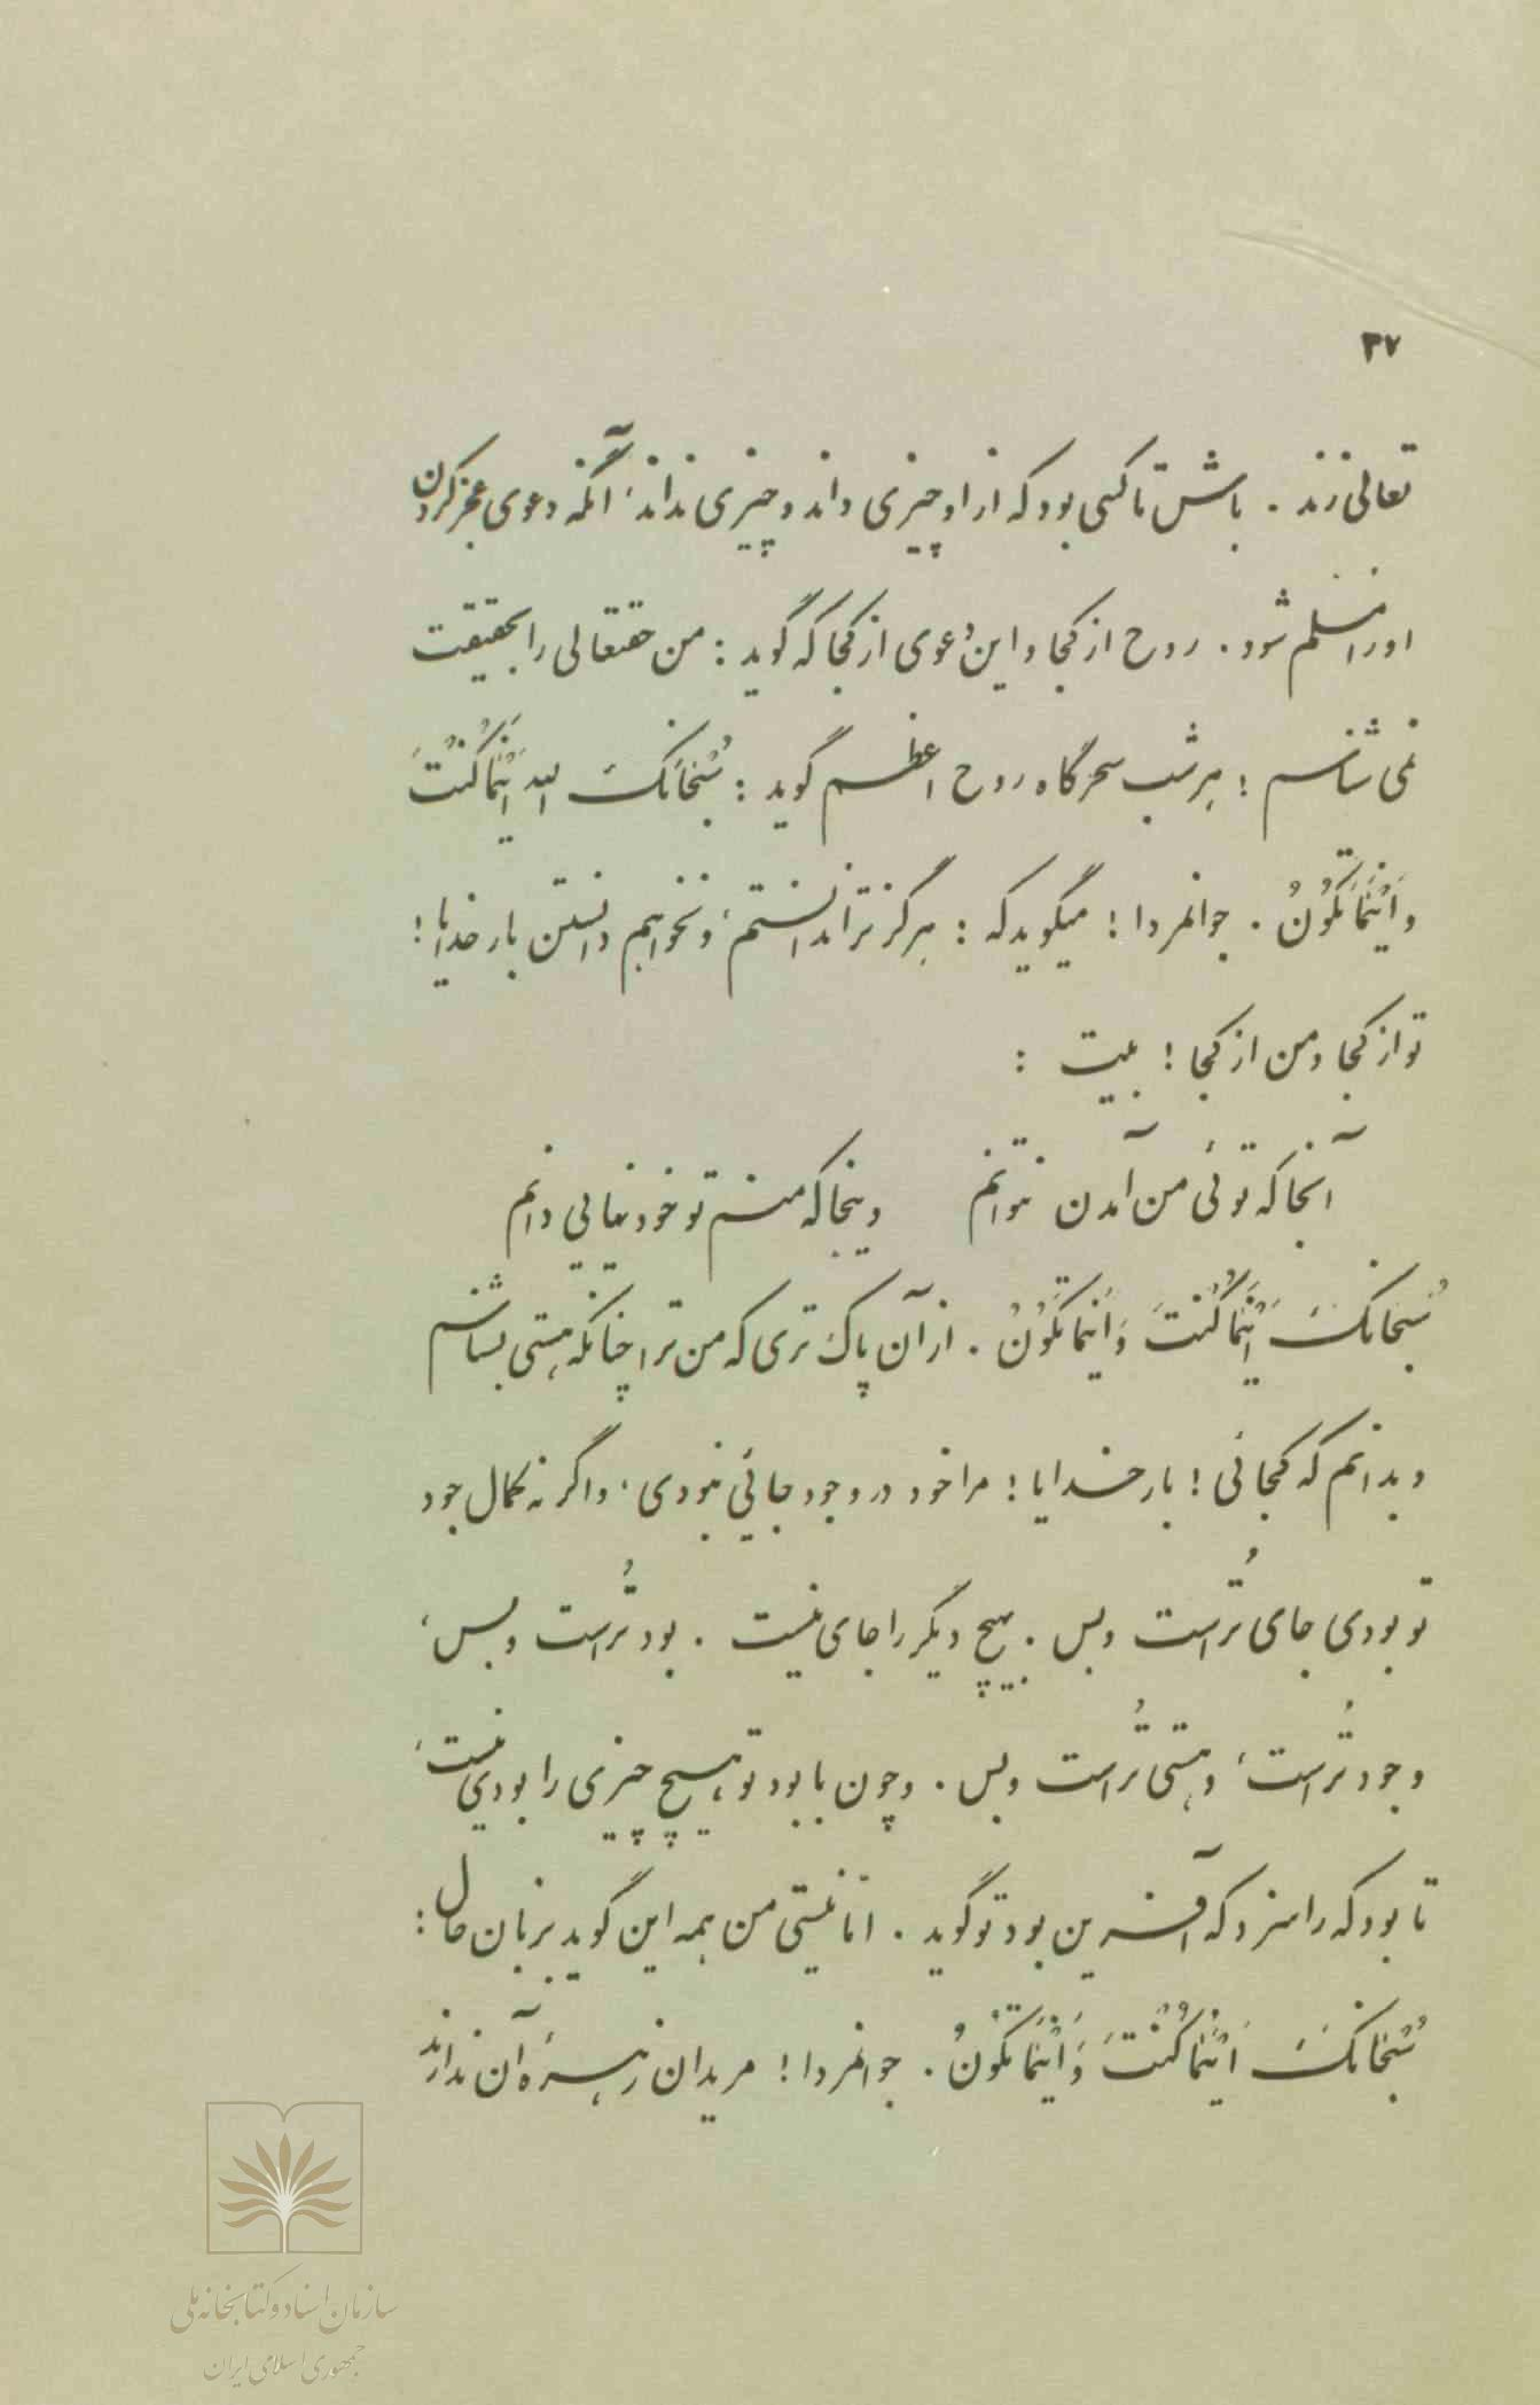 ۳۷
تعالی زند . باش تا کسی بود که از او چیزی داند و چیزی نداند، آنگه دعوی عجز کردن
او را مسلم شود . روح از کجا و این دعوی از کجا که گوید : من حقتعالی را بحقیقت
نمی شناسم ؛ هر شب سحرگاه روح اعظم گوید : سُبْحَانَکَ اللهُ اَیْنَمَا کُنْتَ
وَ اَیْنَمَا تَکُونُ . جوانمردا ! میگوید که : هرگز ترا ندانستم، و نخواهم دانستن بار خدایا !
تو از کجا و من از کجا ! بیت :
آنجا که توئی من آمدن نتوانم وینجا که منم تو خود نیایی دانم
سُبْحَانَکَ اَیْنَمَا کُنْتَ وَ اَیْنَمَا تَکُونُ . از آن پاک تری که من ترا چنانکه هستی بشناسم
و بدانم که کجائی ! بار خدایا ! مرا خود در وجود جائی نبودی، و اگر نه کمال جود
تو بودی جای تُراست و بس . بهیچ دیگر را جای نیست . بود تُراست و بس،
وجود تُراست، و هستی تُراست و بس . و چون با بود تو هیچ چیزی را بودی نیست،
تا بود که را سزد که آفرین بود تو گوید . امّا نیستی من همه این گوید بزبان حال :
سُبْحَانَکَ اَیْنَمَا کُنْتَ وَ اَیْنَمَا تَکُونُ . جوانمردا ! مریدان زهرهٔ آن ندارند
سازمان اسناد و کتابخانه ملی
جمهوری اسلامی ایران